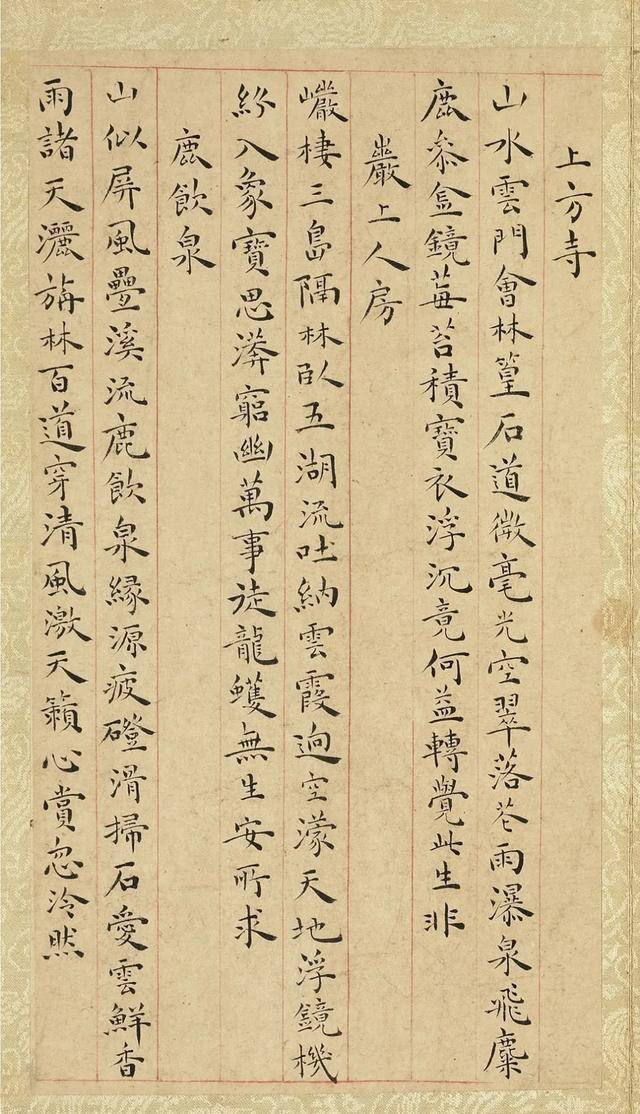 上方寺
山水雲門會林篁石道微毫光空翠落花雨瀑泉飛麋
鹿叅盒鏡莓苔積寶衣浮沉竟何益轉覺此生非
巖上人房
巗棲三島隔林臥五湖流吐納雲霞逈空濛天地浮鏡機
紛入象寶思漭窮幽萬事徒龍蠖無生安所求
鹿飲泉
山似屏風疊溪流鹿飲泉緣源疲磴滑掃石愛雲鮮香
雨諸天灑旃林百道穿清風激天籟心賞忽泠然